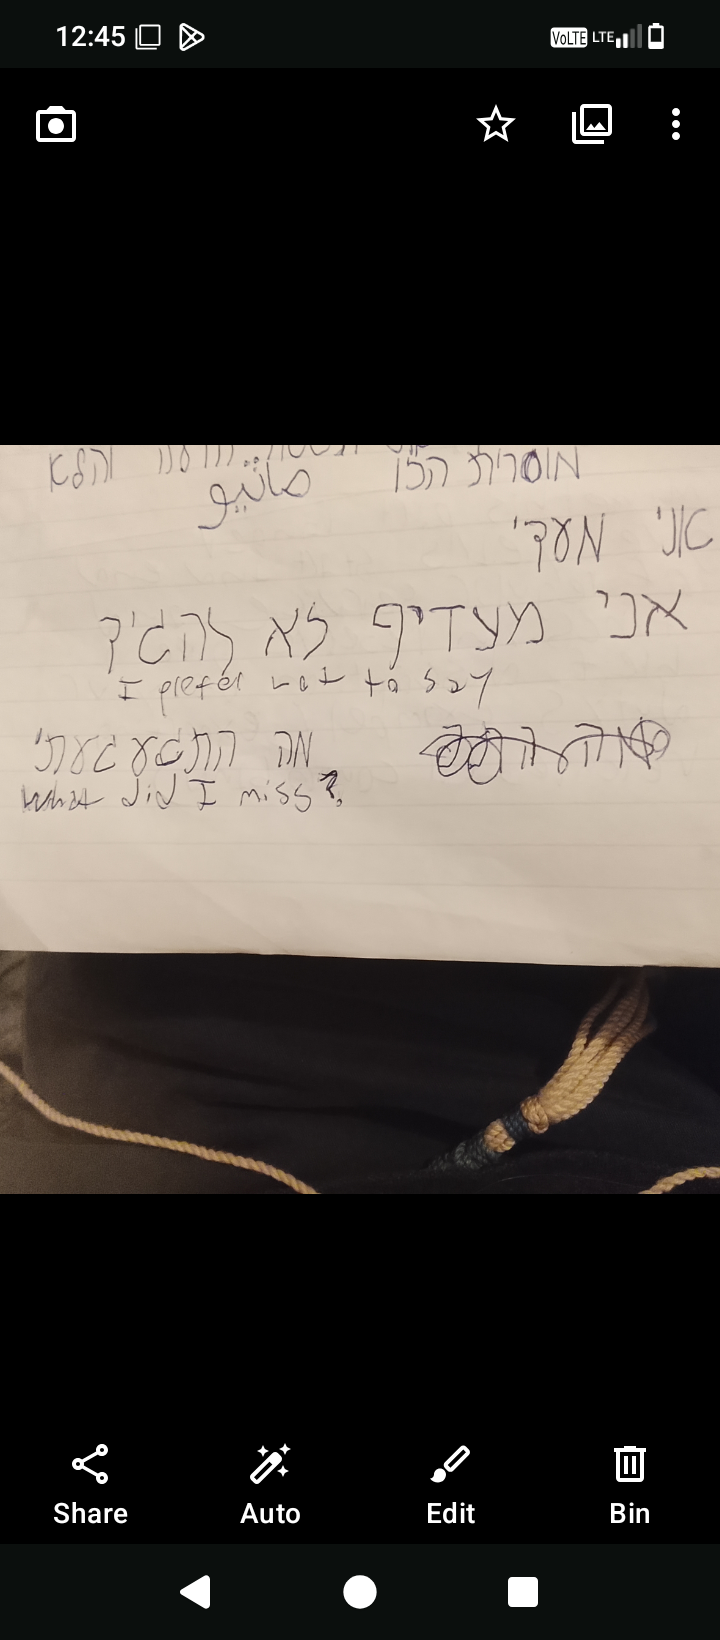 12:45 VoLTE LTE
והלא
מוסרית הכו
אני מעדי
אני מעדיף לא להגיד
I prefer not to say
מה התגעגעתי
What did I miss?
Share Auto Edit Bin